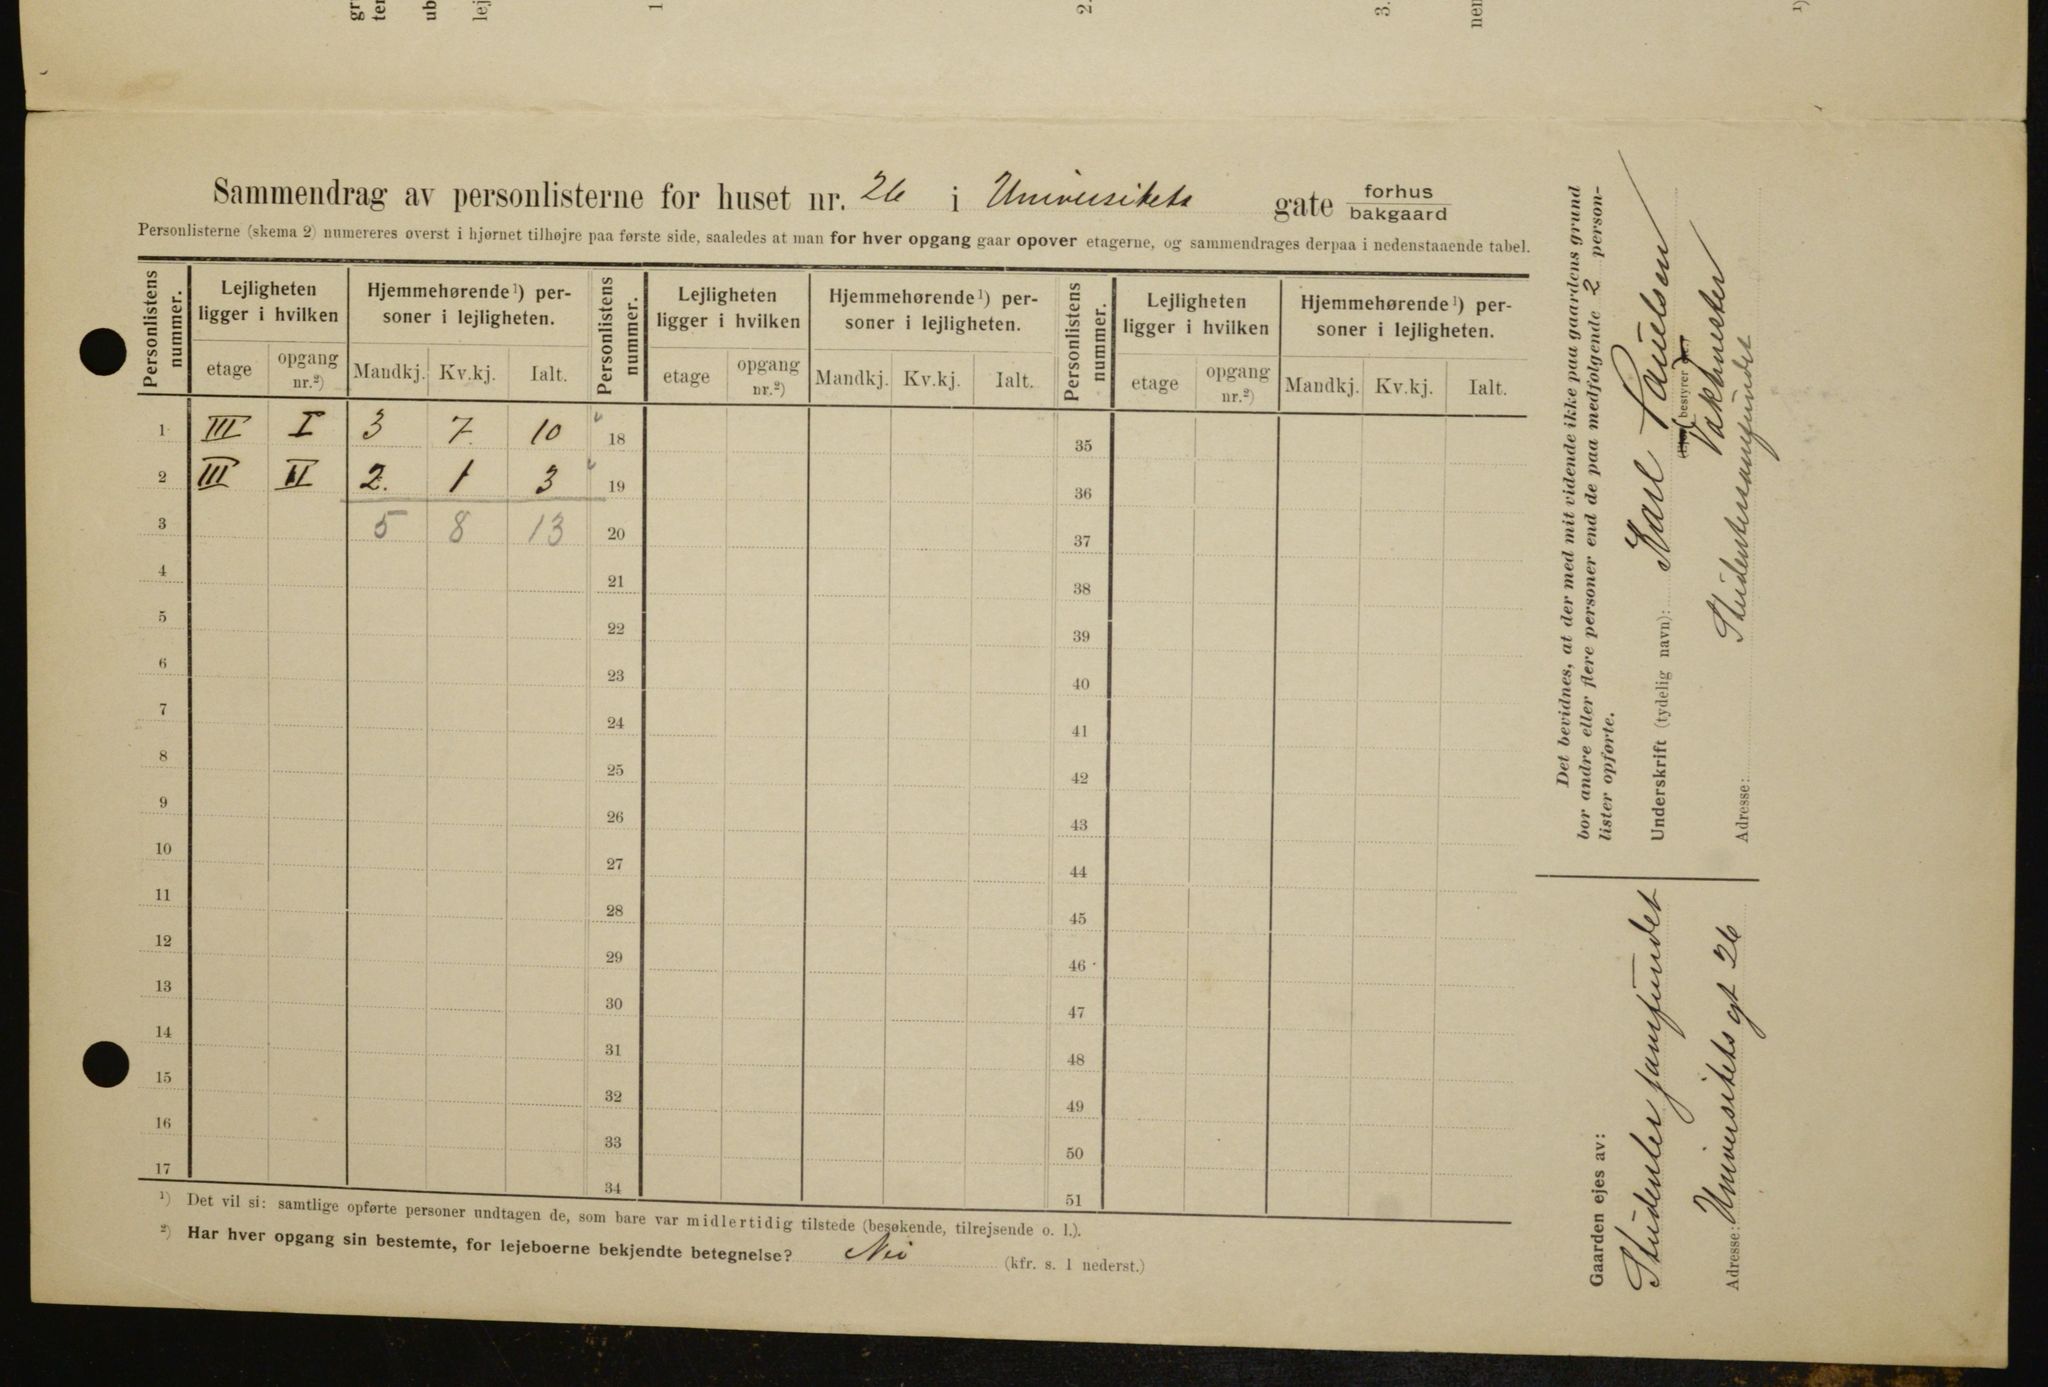 Sammendrag av personlisterne for huset nr. 26 i Universitets gate forhus
bakgaard
Personlisterne (skema 2) numereres øverst i hjørnet tilhøjre paa første side, saaledes at man for hver opgang gaar opover etagerne, og sammendrages derpaa i nedenstaaende tabel.
Personlistens nummer. Lejligheten ligger i hvilken Hjemmehørende¹) personer i lejligheten. Personlistens nummer. Lejligheten ligger i hvilken Hjemmehørende¹) personer i lejligheten. Personlistens nummer. Lejligheten ligger i hvilken Hjemmehørende¹) personer i lejligheten.
etage opgang nr.²) Mandkj. Kv.kj. Ialt. etage opgang nr.²) Mandkj. Kv.kj. Ialt. etage opgang nr.²) Mandkj. Kv.kj. Ialt.
1 III I 3 7 10 18 35
2 III II 2. 1 3 19 36
3 5 8 13 20 37
4 21 38
5 22 39
6 23 40
7 24 41
8 25 42
9 26 43
10 27 44
11 28 45
12 29 46
13 30 47
14 31 48
15 32 49
16 33 50
17 34 51
¹) Det vil si: samtlige opførte personer undtagen de, som bare var midlertidig tilstede (besøkende, tilrejsende o. l.).
²) Har hver opgang sin bestemte, for lejeboerne bekjendte betegnelse? Nei (kfr. s. 1 nederst.)
Det bevidnes, at der med mit vidende ikke paa gaardens grund
bor andre eller flere personer end de paa medfølgende 2 person-
lister opførte.
Underskrift (tydelig navn): Karl Paulsen
bestyrer
Vaktmester
Adresse: Studentersamfundet
Gaarden ejes av:
Studentersamfundet
Adresse: Universitets gt 26